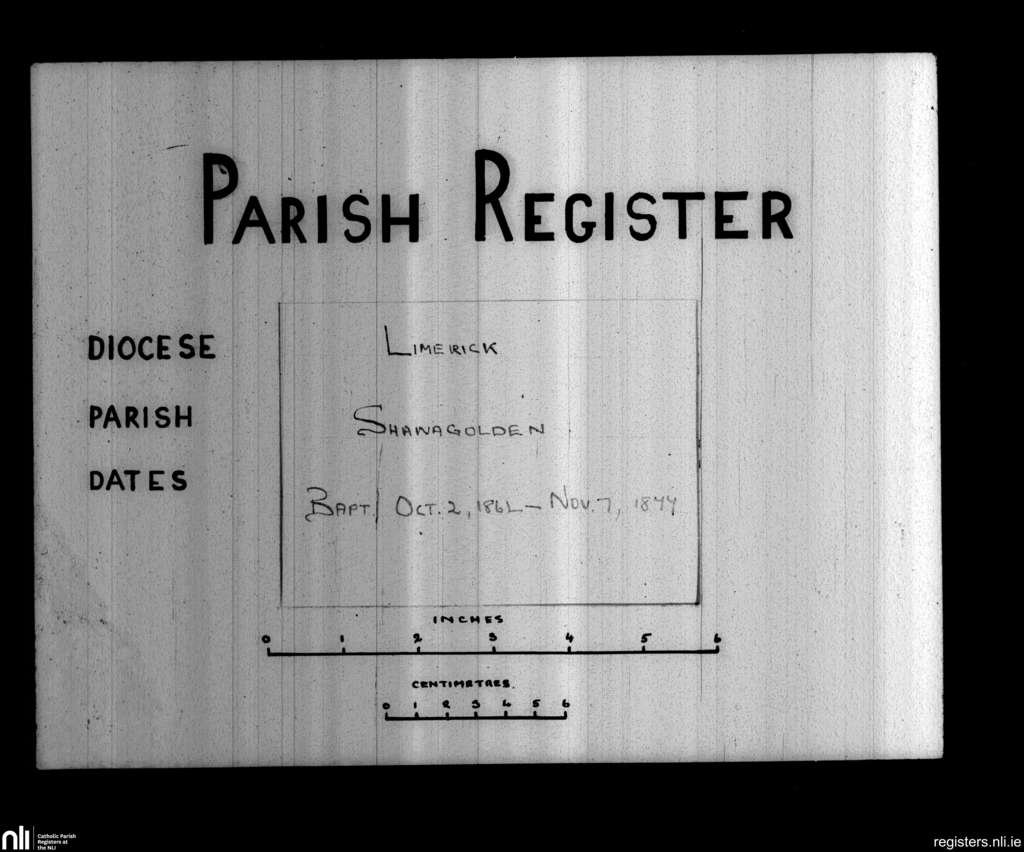 PARISH REGISTER
DIOCESE LIMERICK
PARISH SHANAGOLDEN
DATES BAPT. OCT. 2, 1862 – NOV. 7, 1877
INCHES
0 1 2 3 4 5 6
CENTIMETRES.
0 1 2 3 4 5 6
nli Catholic Parish
Registers at
the NLI
registers.nli.ie